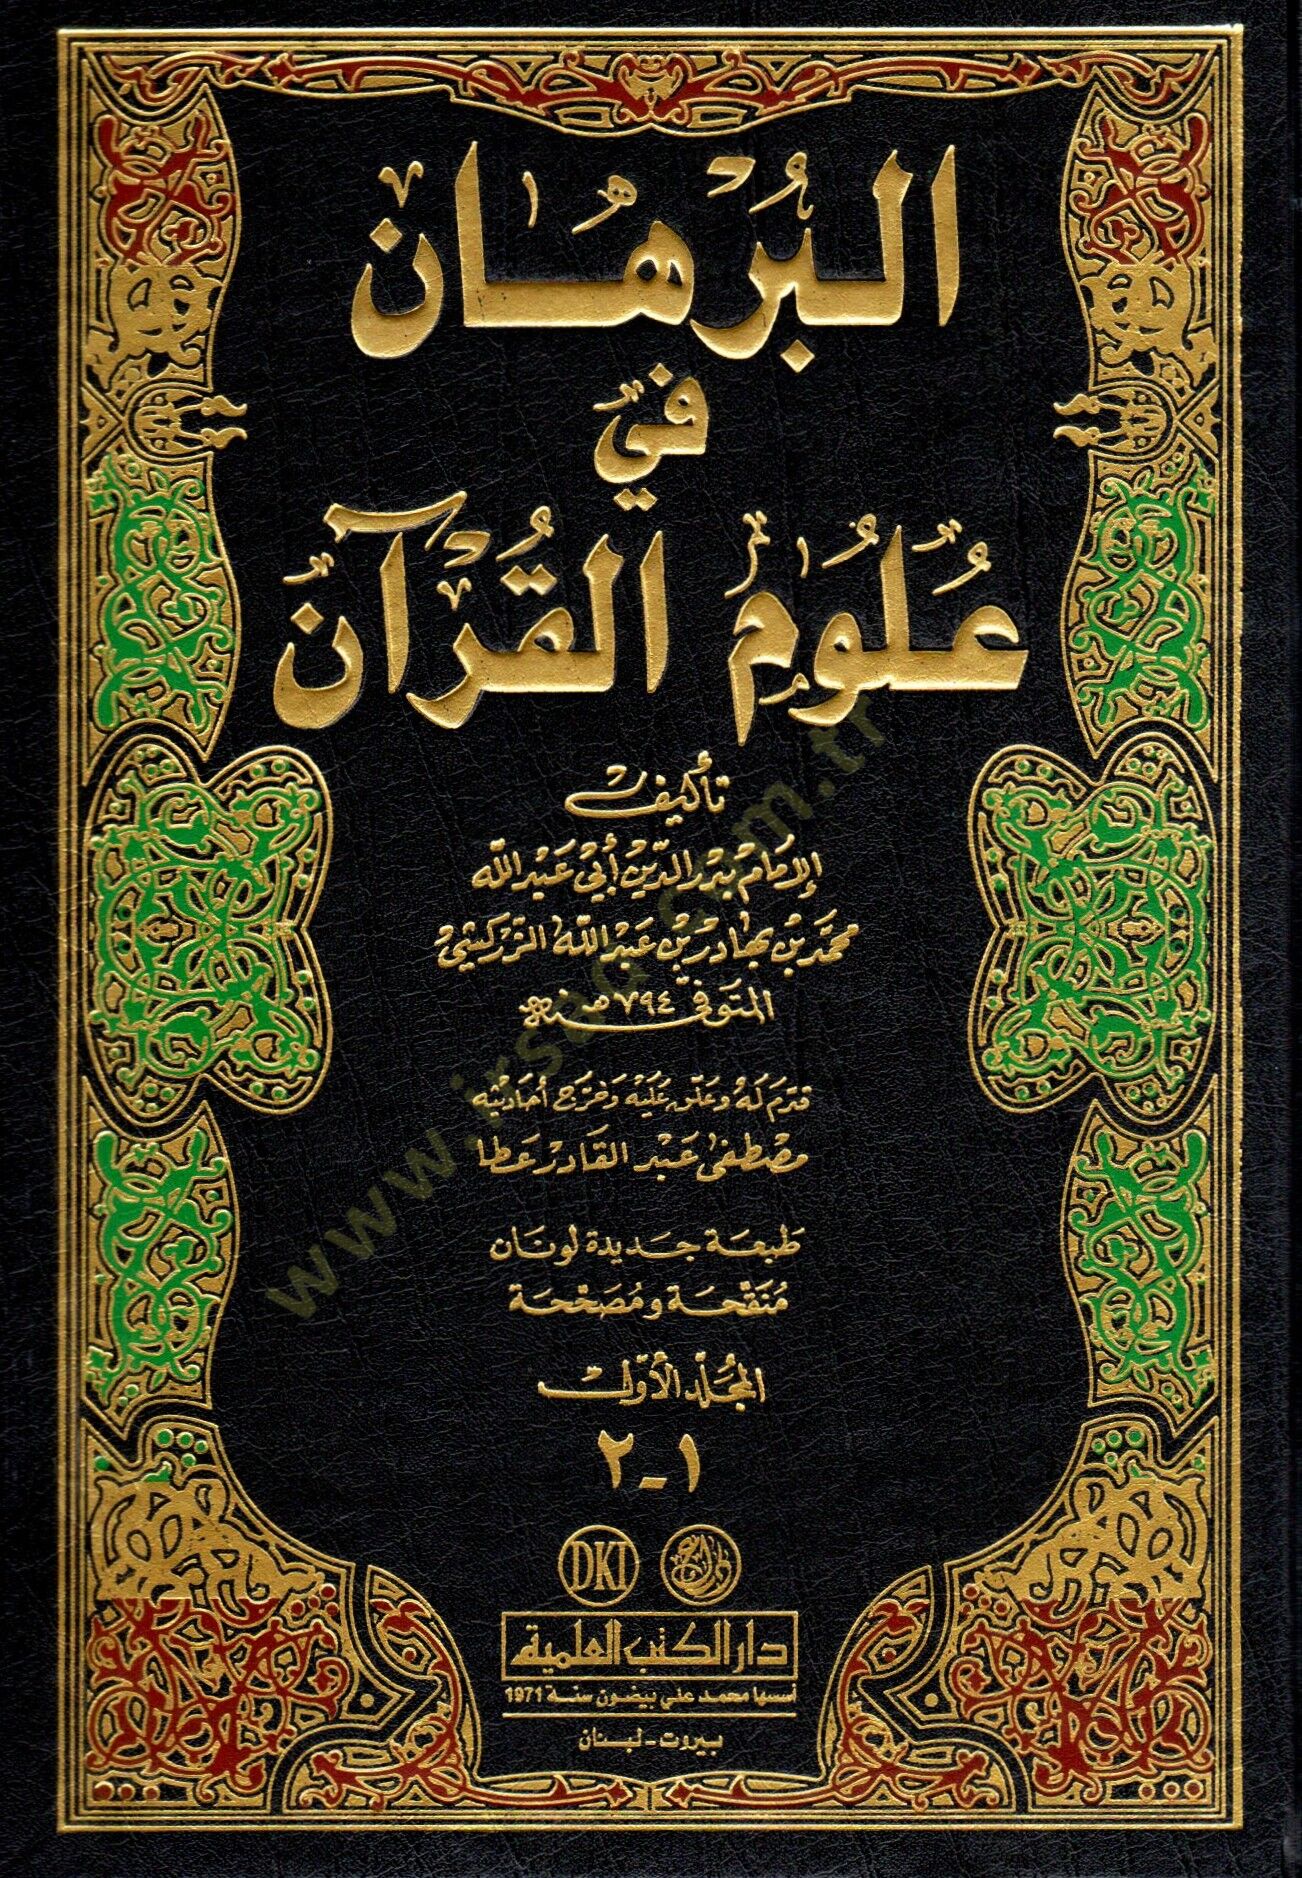 البُرْهَان
في
عُلُومِ القُرْآن
تأليف
الإمام بدر الدين أبي عبد الله
محمد بن بهادر بن عبد الله الزركشي
المتوفى سنة ٧٩٤ هـ
قدم له وعلق عليه وخرج أحاديثه
مصطفى عبد القادر عطا
طبعة جديدة لونان
منقحة ومصححة
المجلد الأول
١-٢
DKI
دار الكتب العلمية
أسسها محمد علي بيضون سنة 1971
بيروت - لبنان
www.irsad.com.tr